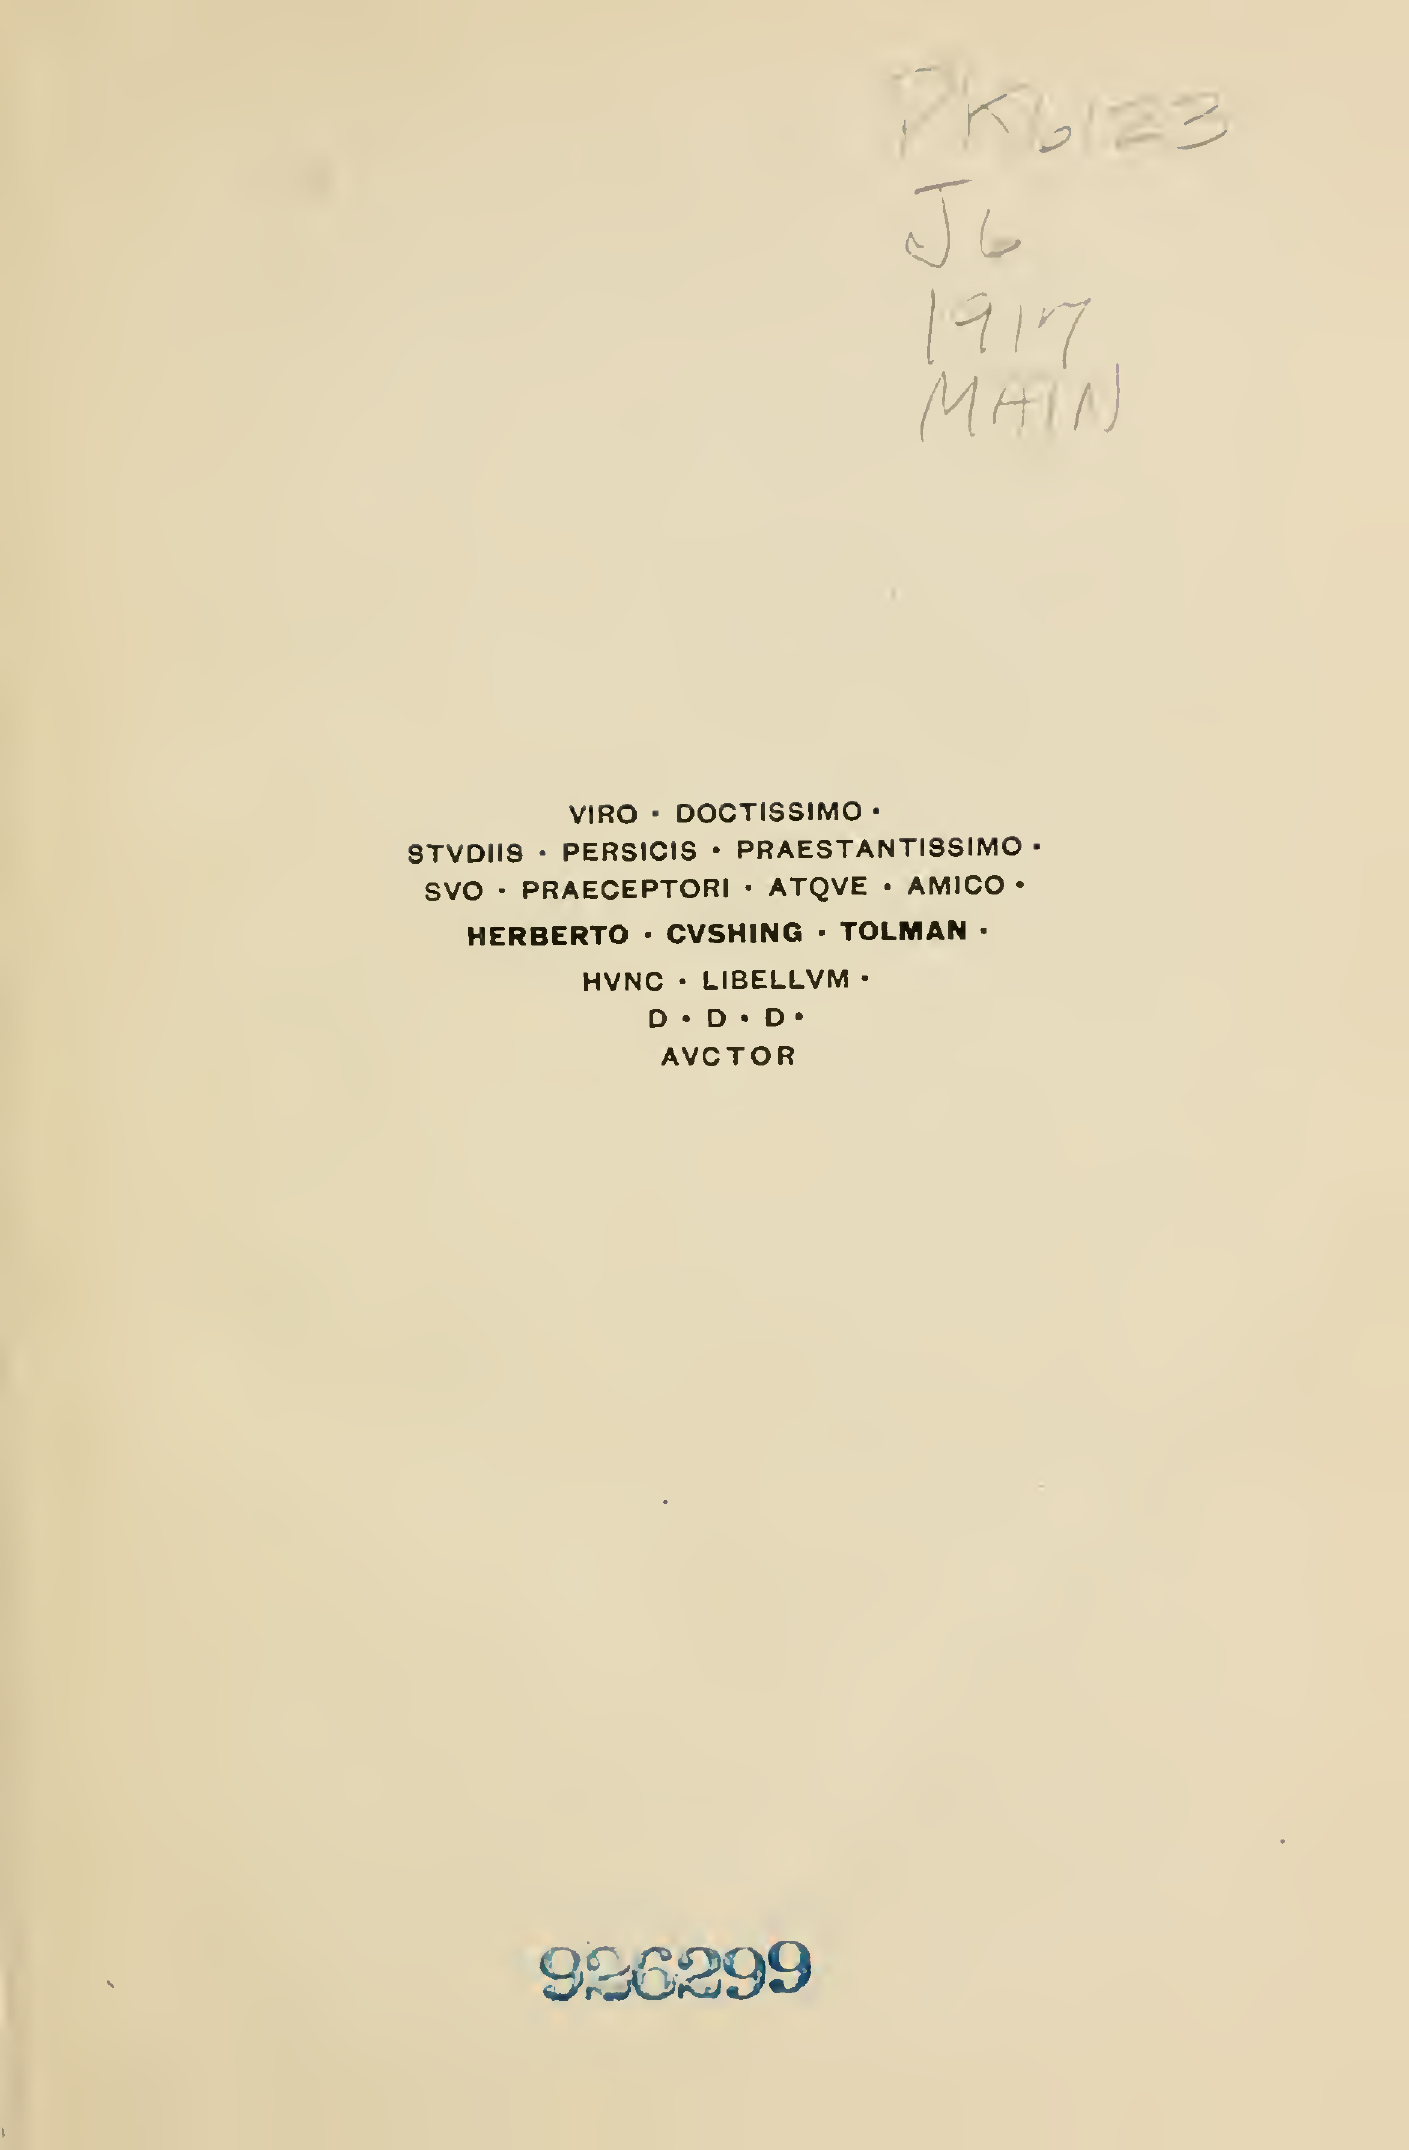 PK6123
J6
1917
MAIN
VIRO · DOCTISSIMO ·
STVDIIS · PERSICIS · PRAESTANTISSIMO ·
SVO · PRAECEPTORI · ATQVE · AMICO ·
HERBERTO · CVSHING · TOLMAN ·
HVNC · LIBELLVM ·
D · D · D ·
AVCTOR
926299